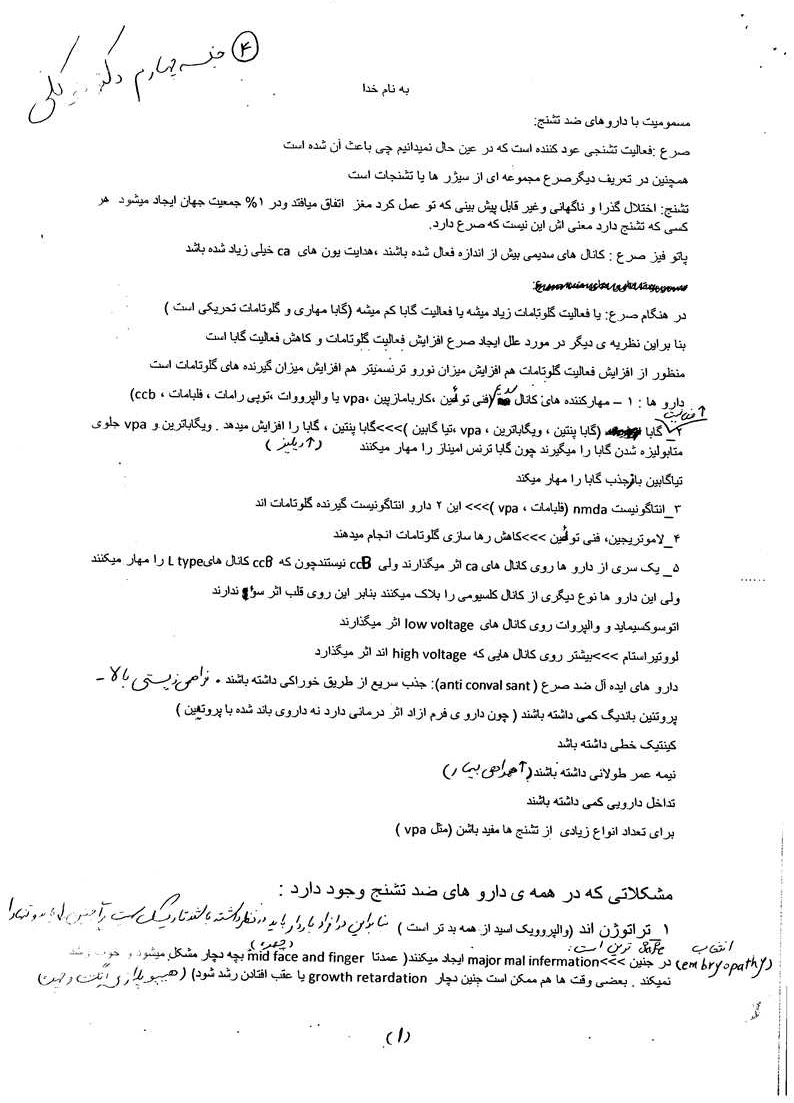 ۴ جلسه چهارم دکتر
به نام خدا
مسمومیت با دارو های ضد تشنج:
صرع :فعالیت تشنجی عود کننده است که در عین حال نمیدانیم چی باعث آن شده است
همچنین در تعریف دیگرصرع مجموعه ای از سیژر ها یا تشنجات است
تشنج: اختلال گذرا و ناگهانی وغیر قابل پیش بینی که تو عمل کرد مغز اتفاق میافتد ودر ۱% جمعیت جهان ایجاد میشود هر
کسی که تشنج دارد معنی اش این نیست که صرع دارد.
پاتو فیز صرع : کانال های سدیمی بیش از اندازه فعال شده باشند ،هدایت یون های ca خیلی زیاد شده باشد
در هنگام صرع: یا فعالیت گلوتامات زیاد میشه یا فعالیت گابا کم میشه (گابا مهاری و گلوتامات تحریکی است )
بنا براین نظریه ی دیگر در مورد علل ایجاد صرع افزایش فعالیت گلوتامات و کاهش فعالیت گابا است
منظور از افزایش فعالیت گلوتامات هم افزایش میزان نورو ترنسمیتر هم افزایش میزان گیرنده های گلوتامات است
دارو ها : ۱ – مهارکننده های کانال سدیم (فنی توئین ،کاربامازپین ،vpa یا والپرووات ،توپی رامات ، فلبامات ، ccb)
↑فعالیت
۲_ گابا (گابا پنتین ، ویگاباترین ، vpa ،تیا گابین )>>>گابا پنتین ، گابا را افزایش میدهد . ویگاباترین و vpa جلوی
متابولیزه شدن گابا را میگیرند چون گابا ترنس امیناز را مهار میکنند (↑ریلیز)
تیاگابین بازجذب گابا را مهار میکند
۳_انتاگونیست nmda (فلبامات ، vpa )>>> این ۲ دارو انتاگونیست گیرنده گلوتامات اند
۴_لاموتریجین، فنی توئین >>>کاهش رها سازی گلوتامات انجام میدهند
۵_ یک سری از دارو ها روی کانال های ca اثر میگذارند ولی ccB نیستندچون که ccB کانال هایL type را مهار میکنند
ولی این دارو ها نوع دیگری از کانال کلسیومی را بلاک میکنند بنابر این روی قلب اثر سوء ندارند
اتوسوکسیماید و والپروات روی کانال های low voltage اثر میگذارند
لووتیراستام >>>بیشتر روی کانال هایی که high voltage اند اثر میگذارد
دارو های ایده آل ضد صرع ( anti conval sant): جذب سریع از طریق خوراکی داشته باشند . فراهمی زیستی بالا -
پروتئین باندینگ کمی داشته باشند ( چون دارو ی فرم ازاد اثر درمانی دارد نه داروی باند شده با پروتئین )
کینتیک خطی داشته باشد
نیمه عمر طولانی داشته باشند(↑همراهی بیمار)
تداخل دارویی کمی داشته باشند
برای تعداد انواع زیادی از تشنج ها مفید باشن (مثل vpa )
مشکلاتی که در همه ی دارو های ضد تشنج وجود دارد :
۱ تراتوژن اند (والپروویک اسید از همه بد تر است ) بنابراین در افراد باردار باید در نظر داشته باشند
انتخاب safe ترین است: (چهره)
(embryopathy) در جنین >>>major mal infermation ایجاد میکنند( عمدتا mid face and finger بچه دچار مشکل میشود و خوب رشد
نمیکند . بعضی وقت ها هم ممکن است جنین دچار growth retardation یا عقب افتادن رشد شود) (هیپوپلازی انگشت و
(۱)